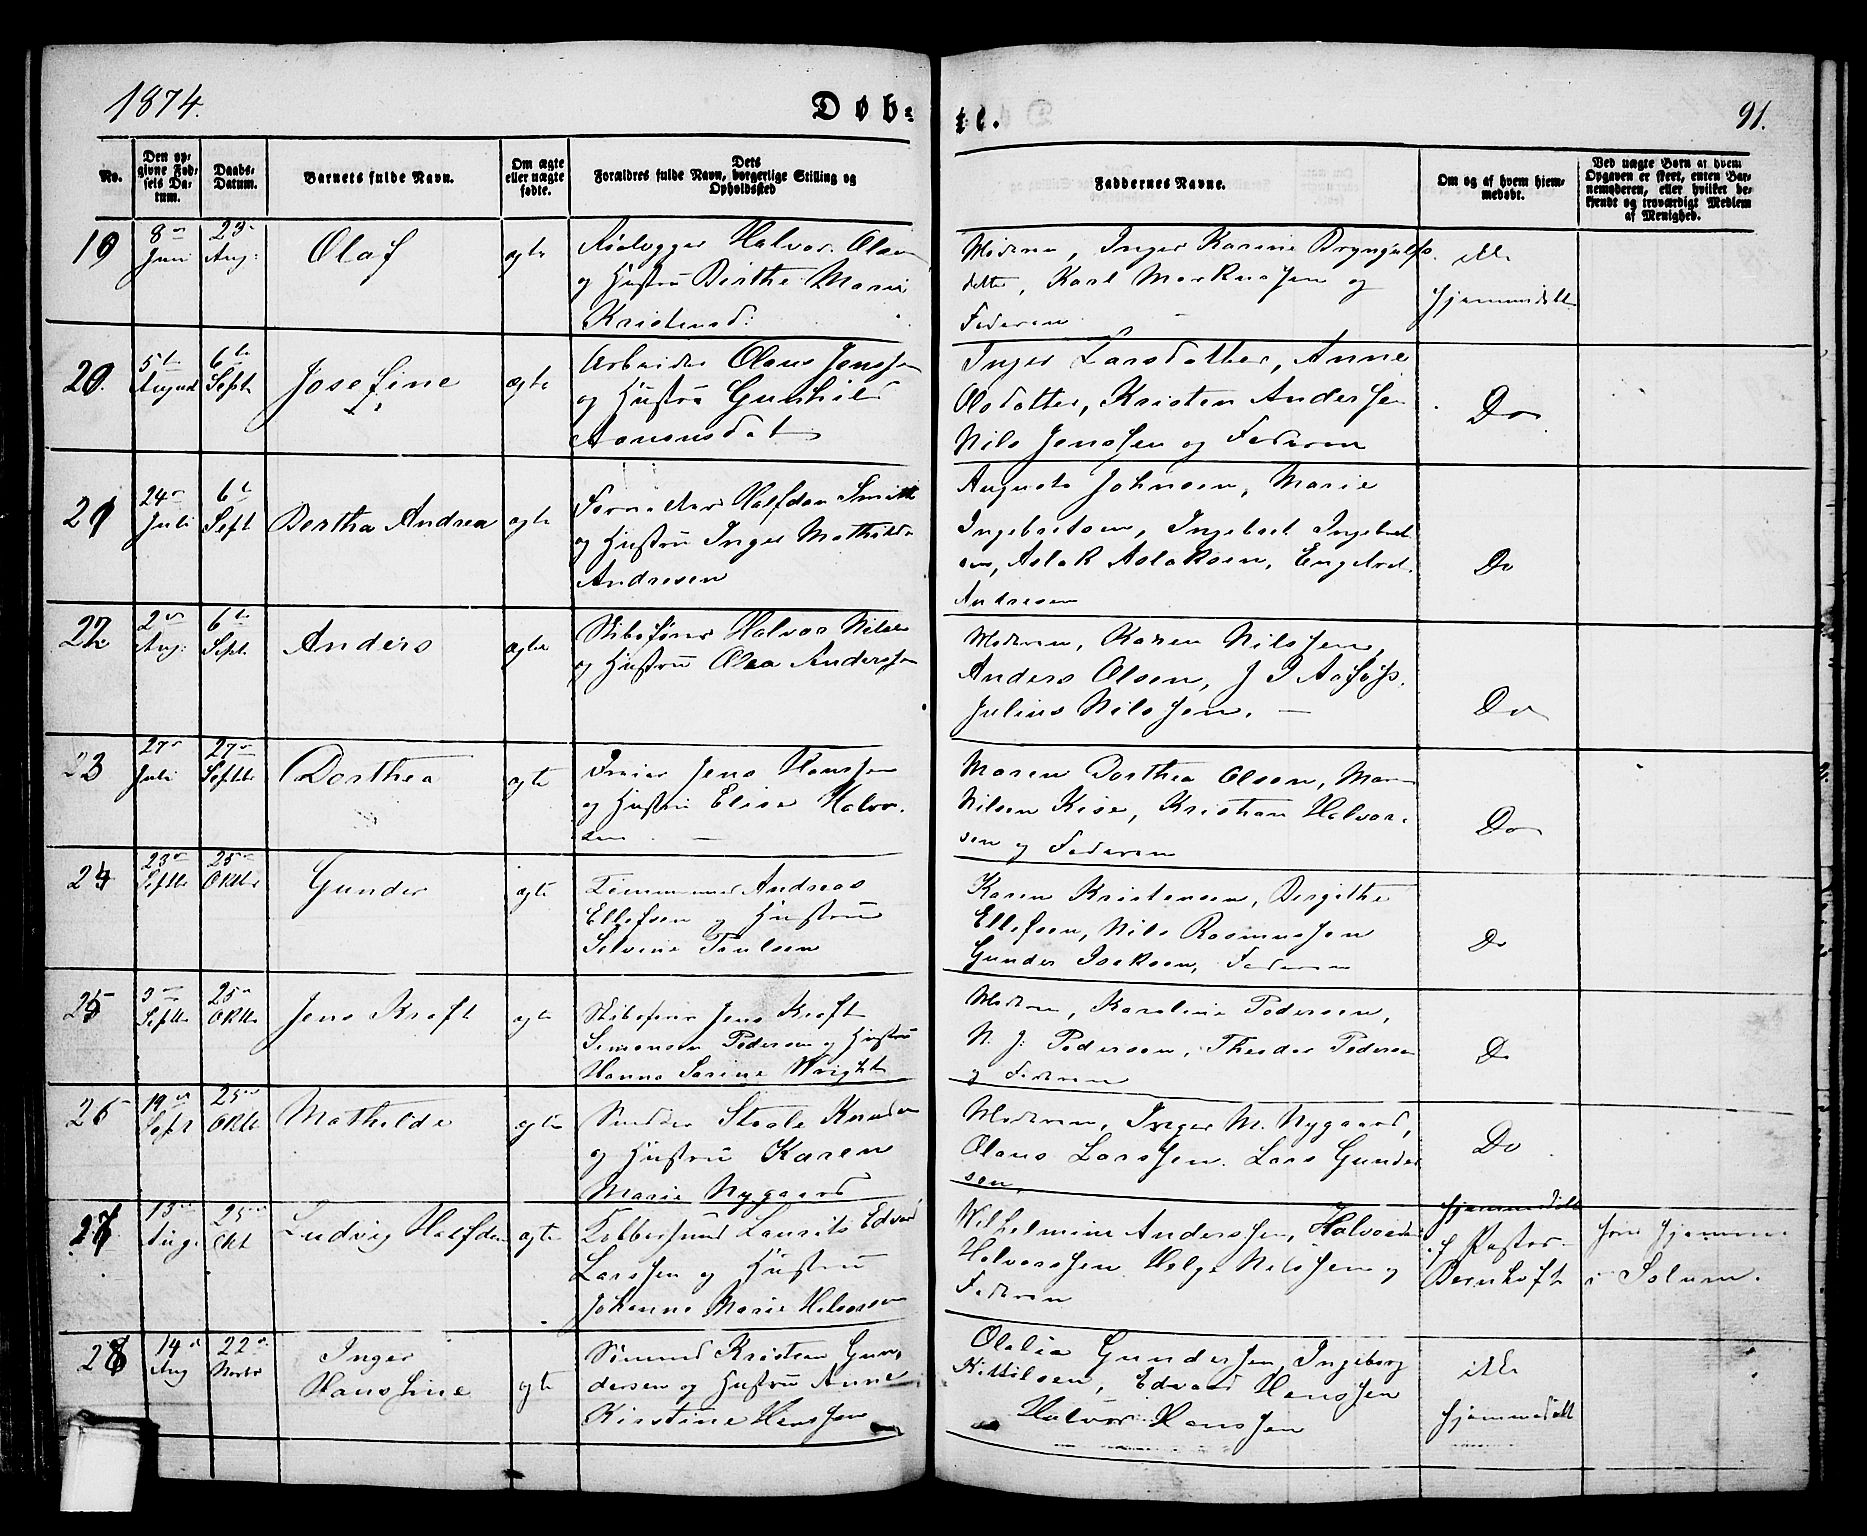 1874.
Døb-
te.
91.
No.
Den op-
givne Fød-
sels Da-
tum.
Daabs-
Datum.
Barnets fulde Navn.
Om ægte
eller uægte
fødte.
Dets
Forældres fulde Navn, borgerlige Stilling og
Opholdssted
Faddernes Navne.
Om og af hvem hjem-
medøbt.
Ved uægte Børn af hvem
Opgaven er skeet, enten Bar-
nemoderen, eller hvilket be-
kjendt og troværdigt Medlem
af Menighed.
19
8de
Juni
23
Aug:
Olaf
ægte
Halvor Olsen
og Hustru Birthe Marie
Kristensd:
Moderen, Inger Karine Bryngulfs-
datter, Karl Markussen og
Faderen
ikke
hjemmedøbt
20.
5te
August
6te
Sept
Josefine
ægte
Arbeider Olaus Jenssen
og Hustru Gunhild
Aanonsdat
Inger Larsdatter, Anne
Olsdatter, Kristen Anderssen
Nils Jenssen og Faderen
Do
21
24
Juli
6te
Sept
Berthe Andrea
ægte
Forvalter Halfdan Smith
og Hustru Inger Mathilde
Andresen
Augusta Johnsen, Marie
Ingebretsen, Ingebret Ingebret-
sen, Aslak Aslaksen, Engebret
Andresen
Do
22
2
Aug:
6te
Sept.
Anders
ægte
Skibsfører Halvor Nilsen
og Hustru Olea Anderssen
Moderen, Karen Nilssen,
Anders Olsen, J J Aafoss.
Julius Nilssen. —
Do
23
27
Juli
27
Septbr
Dorthea
ægte
Jens Hanssen
og Hustru Elise Halvor-
sen. —
Maren Dorthea Olsen, Maren
Nilsen Kise, Kristian Halvor-
sen og Faderen
Do
24
23
Septbr
25
Oktbr
Gunder
ægte
Tømmermand Andreas
Ellefsen og Hustru
Silvine Paulsen
Karen Kristensen, Bergithe
Ellefsen, Nils Rasmussen
Gunder Isaksen, Faderen
Do
25
3
Septbr
25
Oktbr
Jens Kraft
ægte
Skibsfører Jens Kraft
Simonsen Pedersen og Hustru
Hanna Sarine Wright
Moderen, Karoline Pedersen,
N. J. Pedersen, Theodor Pedersen
og Faderen
Do
26
19
Sept
25
Oktbr
Mathilde
ægte
Snedker Staale Knudsen
og Hustru Karen
Marie Nygaard
Moderen, Inger M. Nygaard,
Olaus Larssen, Lars Gunder
sen,
Do
27
15
Aug.
25
Okt
Ludvig Halfdan
ægte
Kobbersmed Laurits Edvard
Larssen og Hustru
Johanne Marie Halvorsen
Wilhelmine Anderssen, Halvor
Halvorssen Helge Nilssen og
Faderen
hjemmedøbt
af Pastor
Bernhoft
hjemme
i Solum.
28
14
Aug
22
Novbr
Inger
Hanssine
ægte
Sømand Kristen Gun-
dersen og Hustru Anne
Kirstine Hanssen
Olalia Gunderssen, Ingeborg
Kittilsen, Edvard Hanssen
Halvor Hanssen
ikke
hjemmedøbt